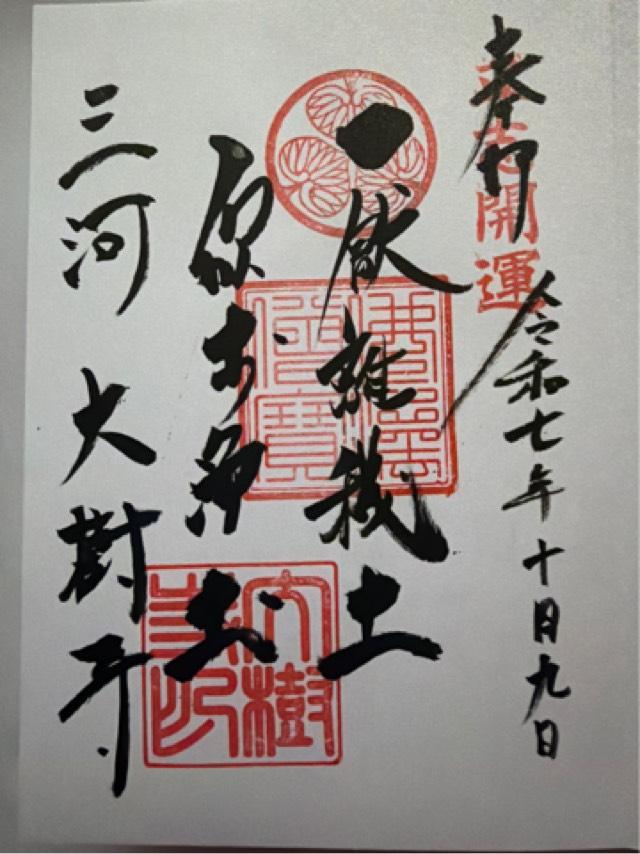 奉拝
志開運
令和七年十月九日
厭離穢土
欣求浄土
佛法僧寶
三河 大樹寺
大樹寺印